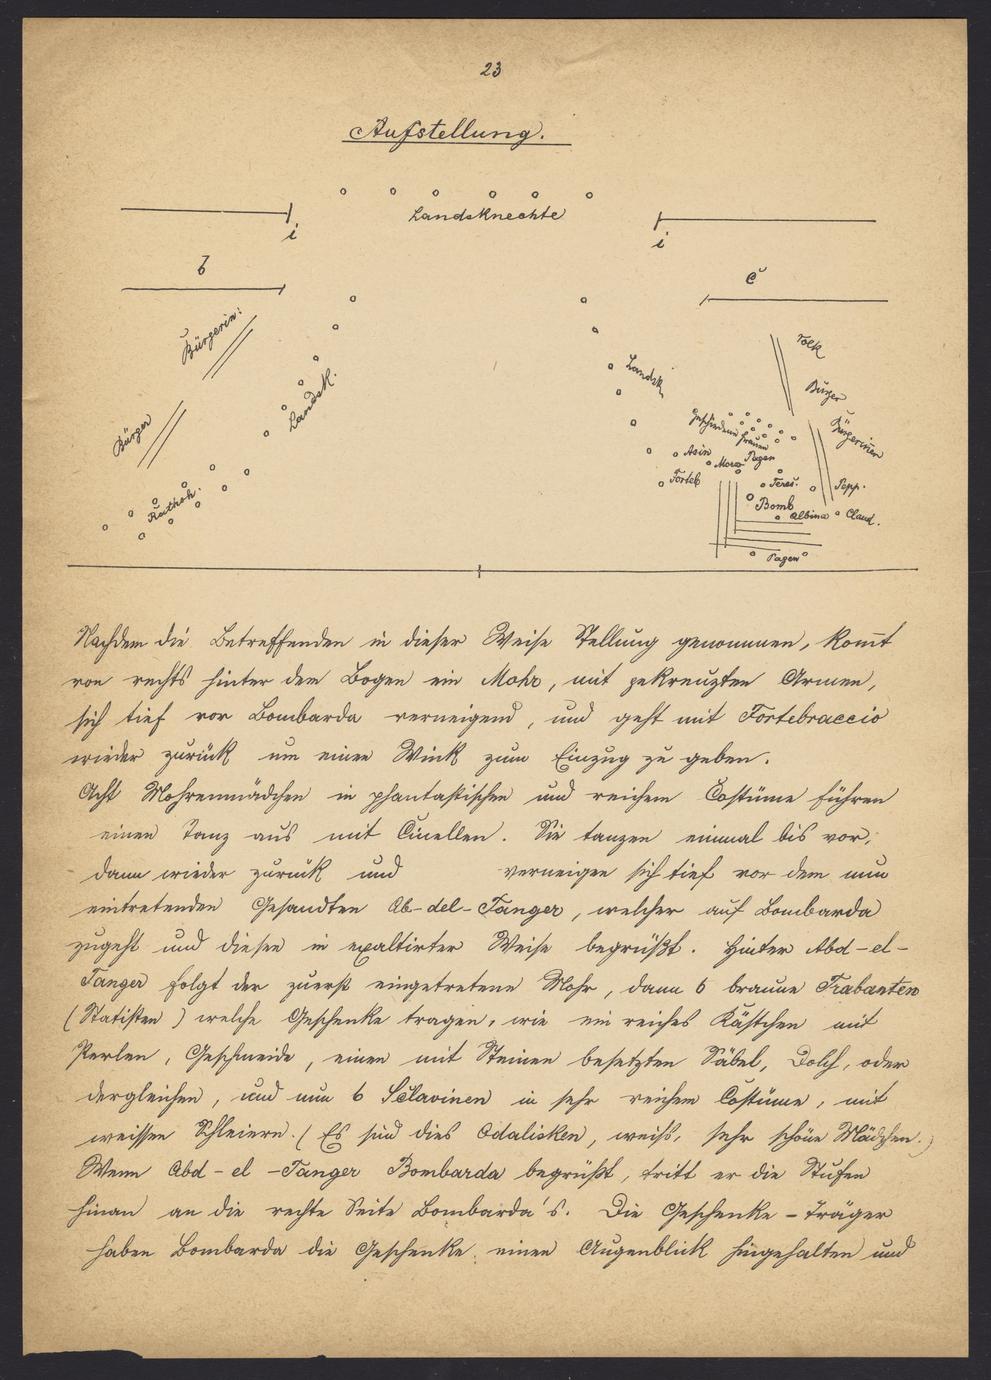 23
Aufstellung.
Landsknechte
i
i
b
c
Bürgerin:
Volk
Landsk.
Landsk.
Bürger
Bürger
Bürgerinen
Geschiedene Frauen
Asin
Moro
Pagen
Forteb
Feres.
Pepp.
Rathsh.
Bomb
Albina
Claud.
Pagen
Nachdem die Betreffenden in dieser Weise Stellung genommen, kom̅t
von rechts hinter dem Bogen ein Mohr, mit gekreuzten Armen,
sich tief vor Bombarda verneigend, und geht mit Fortebraccio
wieder zurück um einen Wink zum Einzug zu geben.
Acht Mohrenmädchen in phantastischen und reichem Costüme führen
einen Tanz aus mit Cinellen. Sie tanzen einmal bis vor,
dann wieder zurück und verneigen sich tief vor dem nun
eintretenden Gesandten Ab-del-Tanger, welcher auf Bombarda
zugeht und diesen in exaltirter Weise begrüßt. Hinter Abd-el-
Tanger folgt der zuerst eingetretene Mohr, dann 6 braune Trabanten
(Statisten) welche Geschenke tragen, wie ein reiches Kästchen mit
Perlen, Geschmeide, einen mit Steinen besetzten Säbel, Dolch, oder
dergleichen, und nun 6 Sclavinen in sehr reichem Costüme, mit
weissen Schleiern. (Es sind dies Odalisken, weiß, sehr schöne Mädchen.)
Wenn Abd-el-Tanger Bombarda begrüßt, tritt er die Stufen
hinan an die rechte Seite Bombarda's. Die Geschenke-Träger
haben Bombarda die Geschenke einen Augenblick hingehalten und